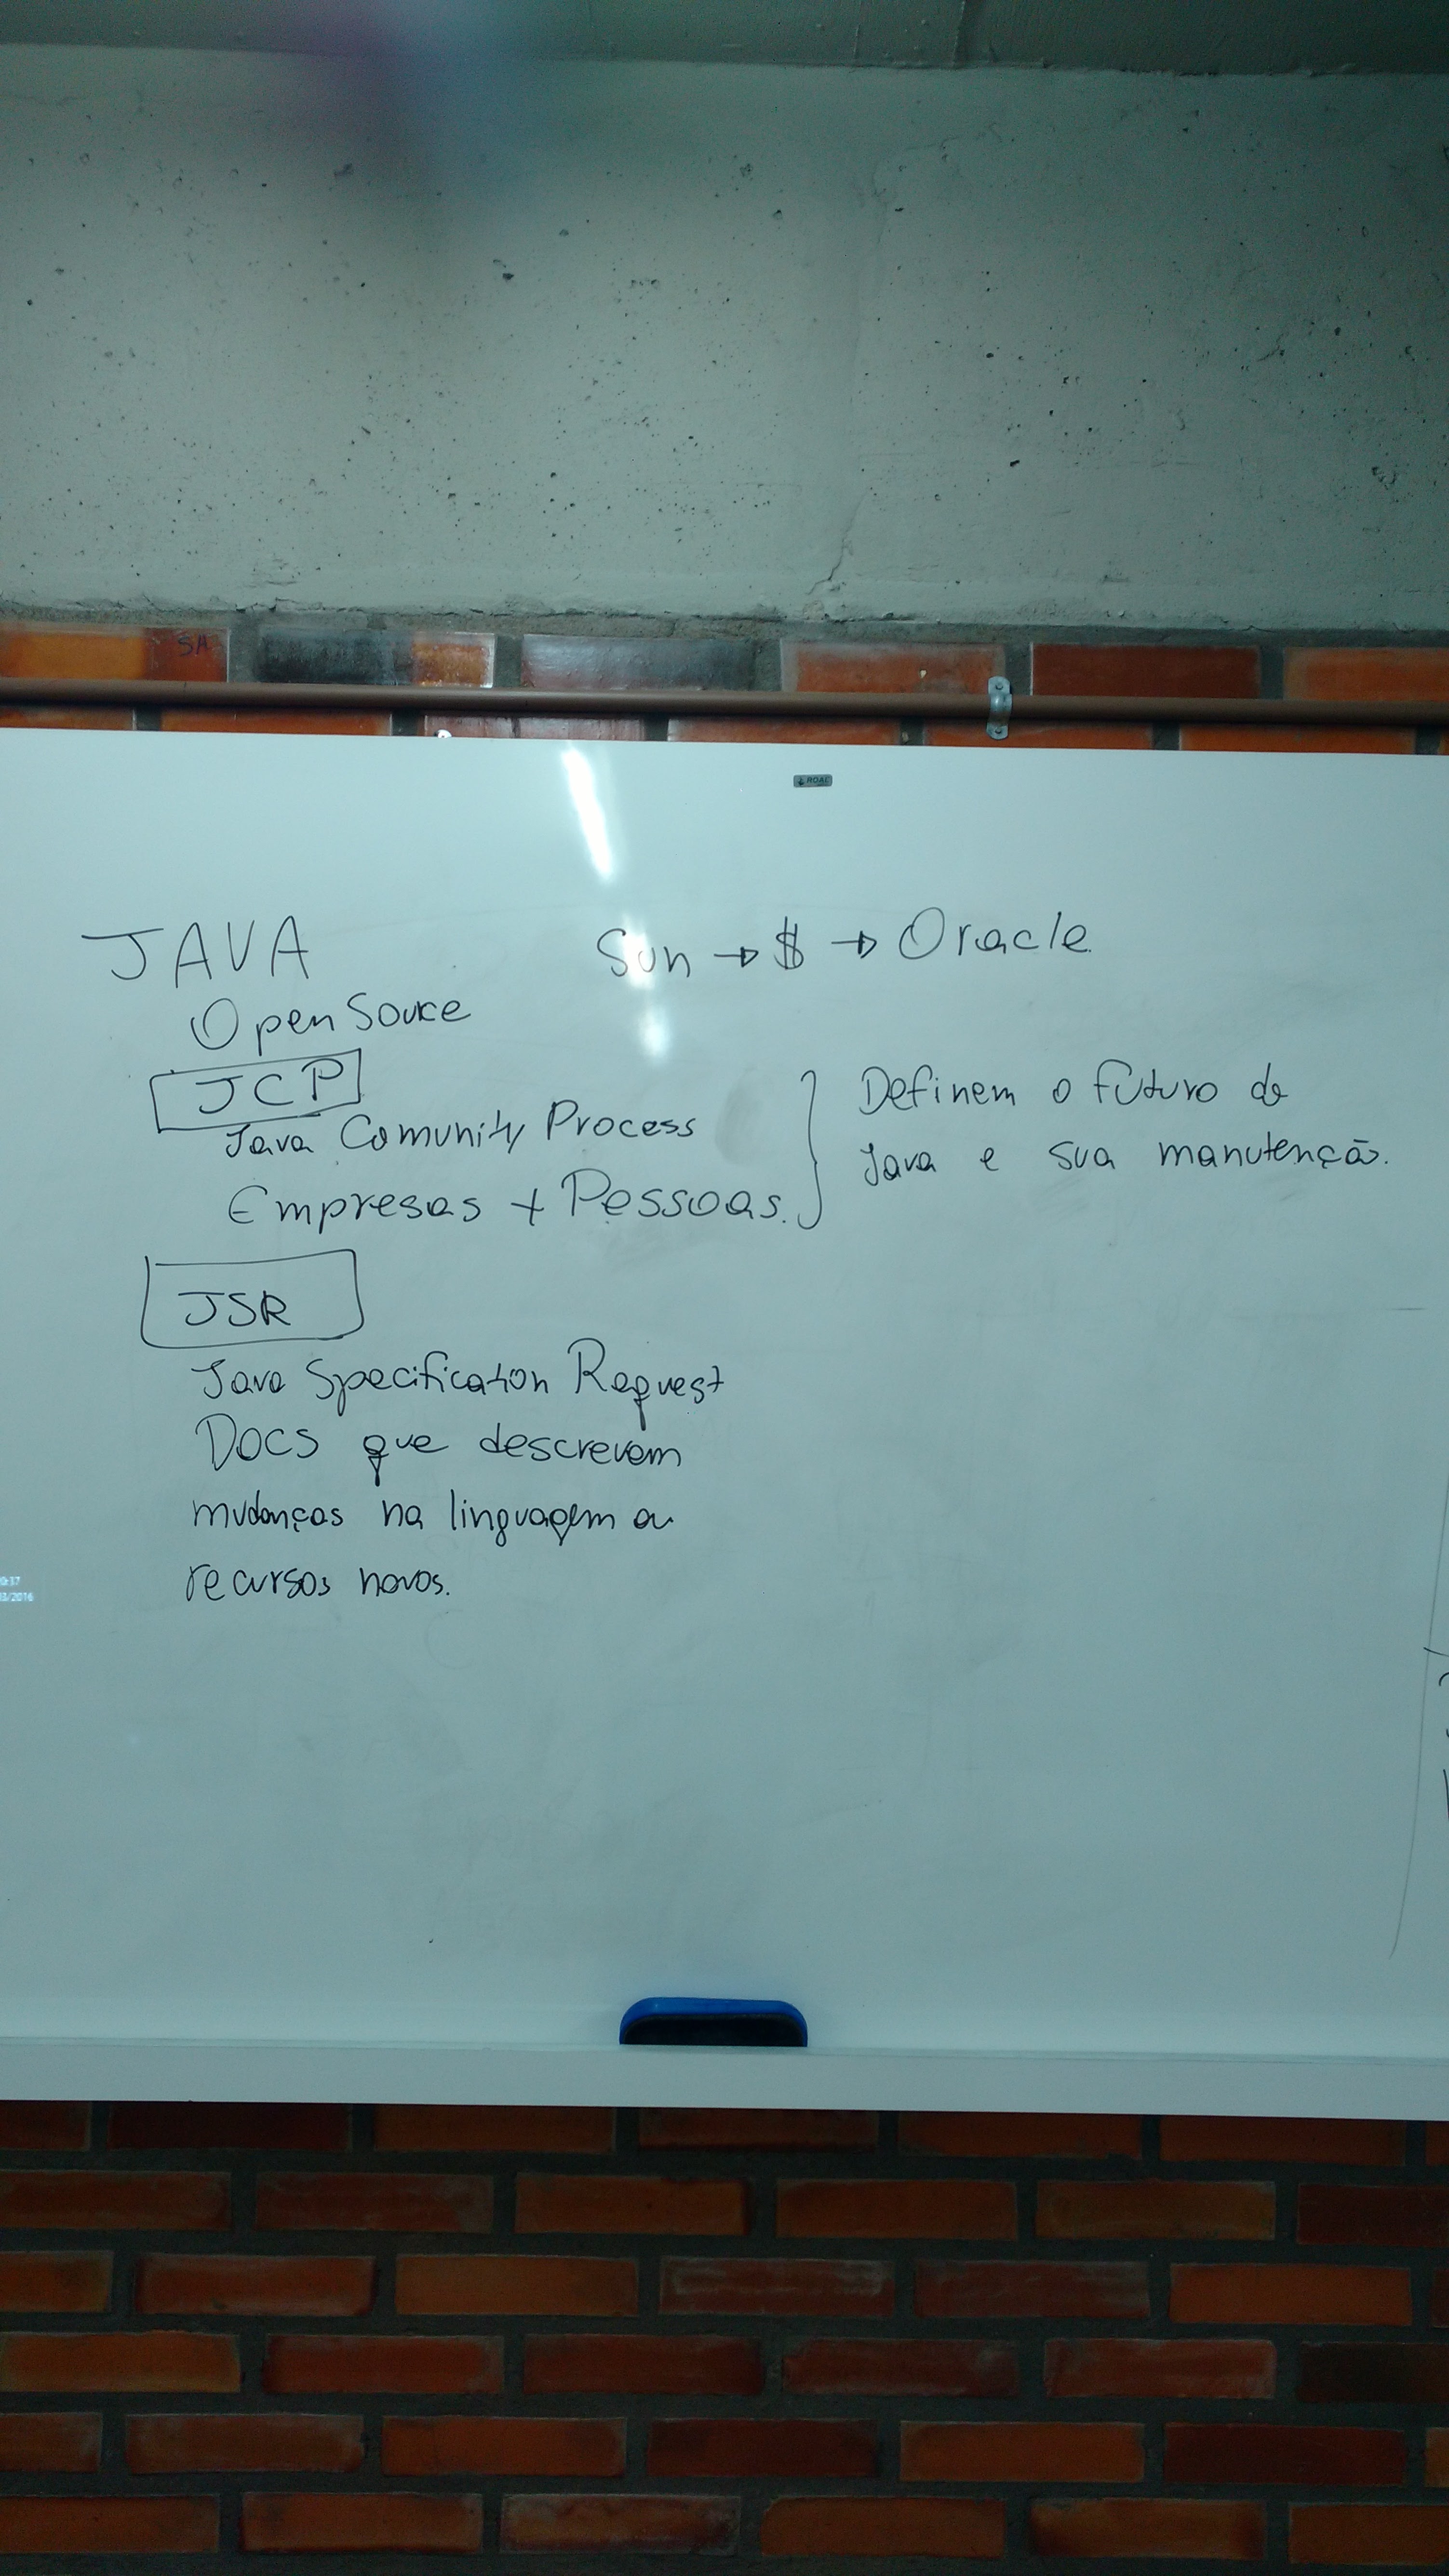 JAVA
Sun → $ → Oracle
Open Source
JCP
Java Comunity Process
Empresas + Pessoas.
Definem o futuro do
Java e sua manutenção.
JSR
Java Specification Request
Docs que descrevem
mudanças na linguagem ou
recursos novos.
ROAL
SA
0:37
/2016